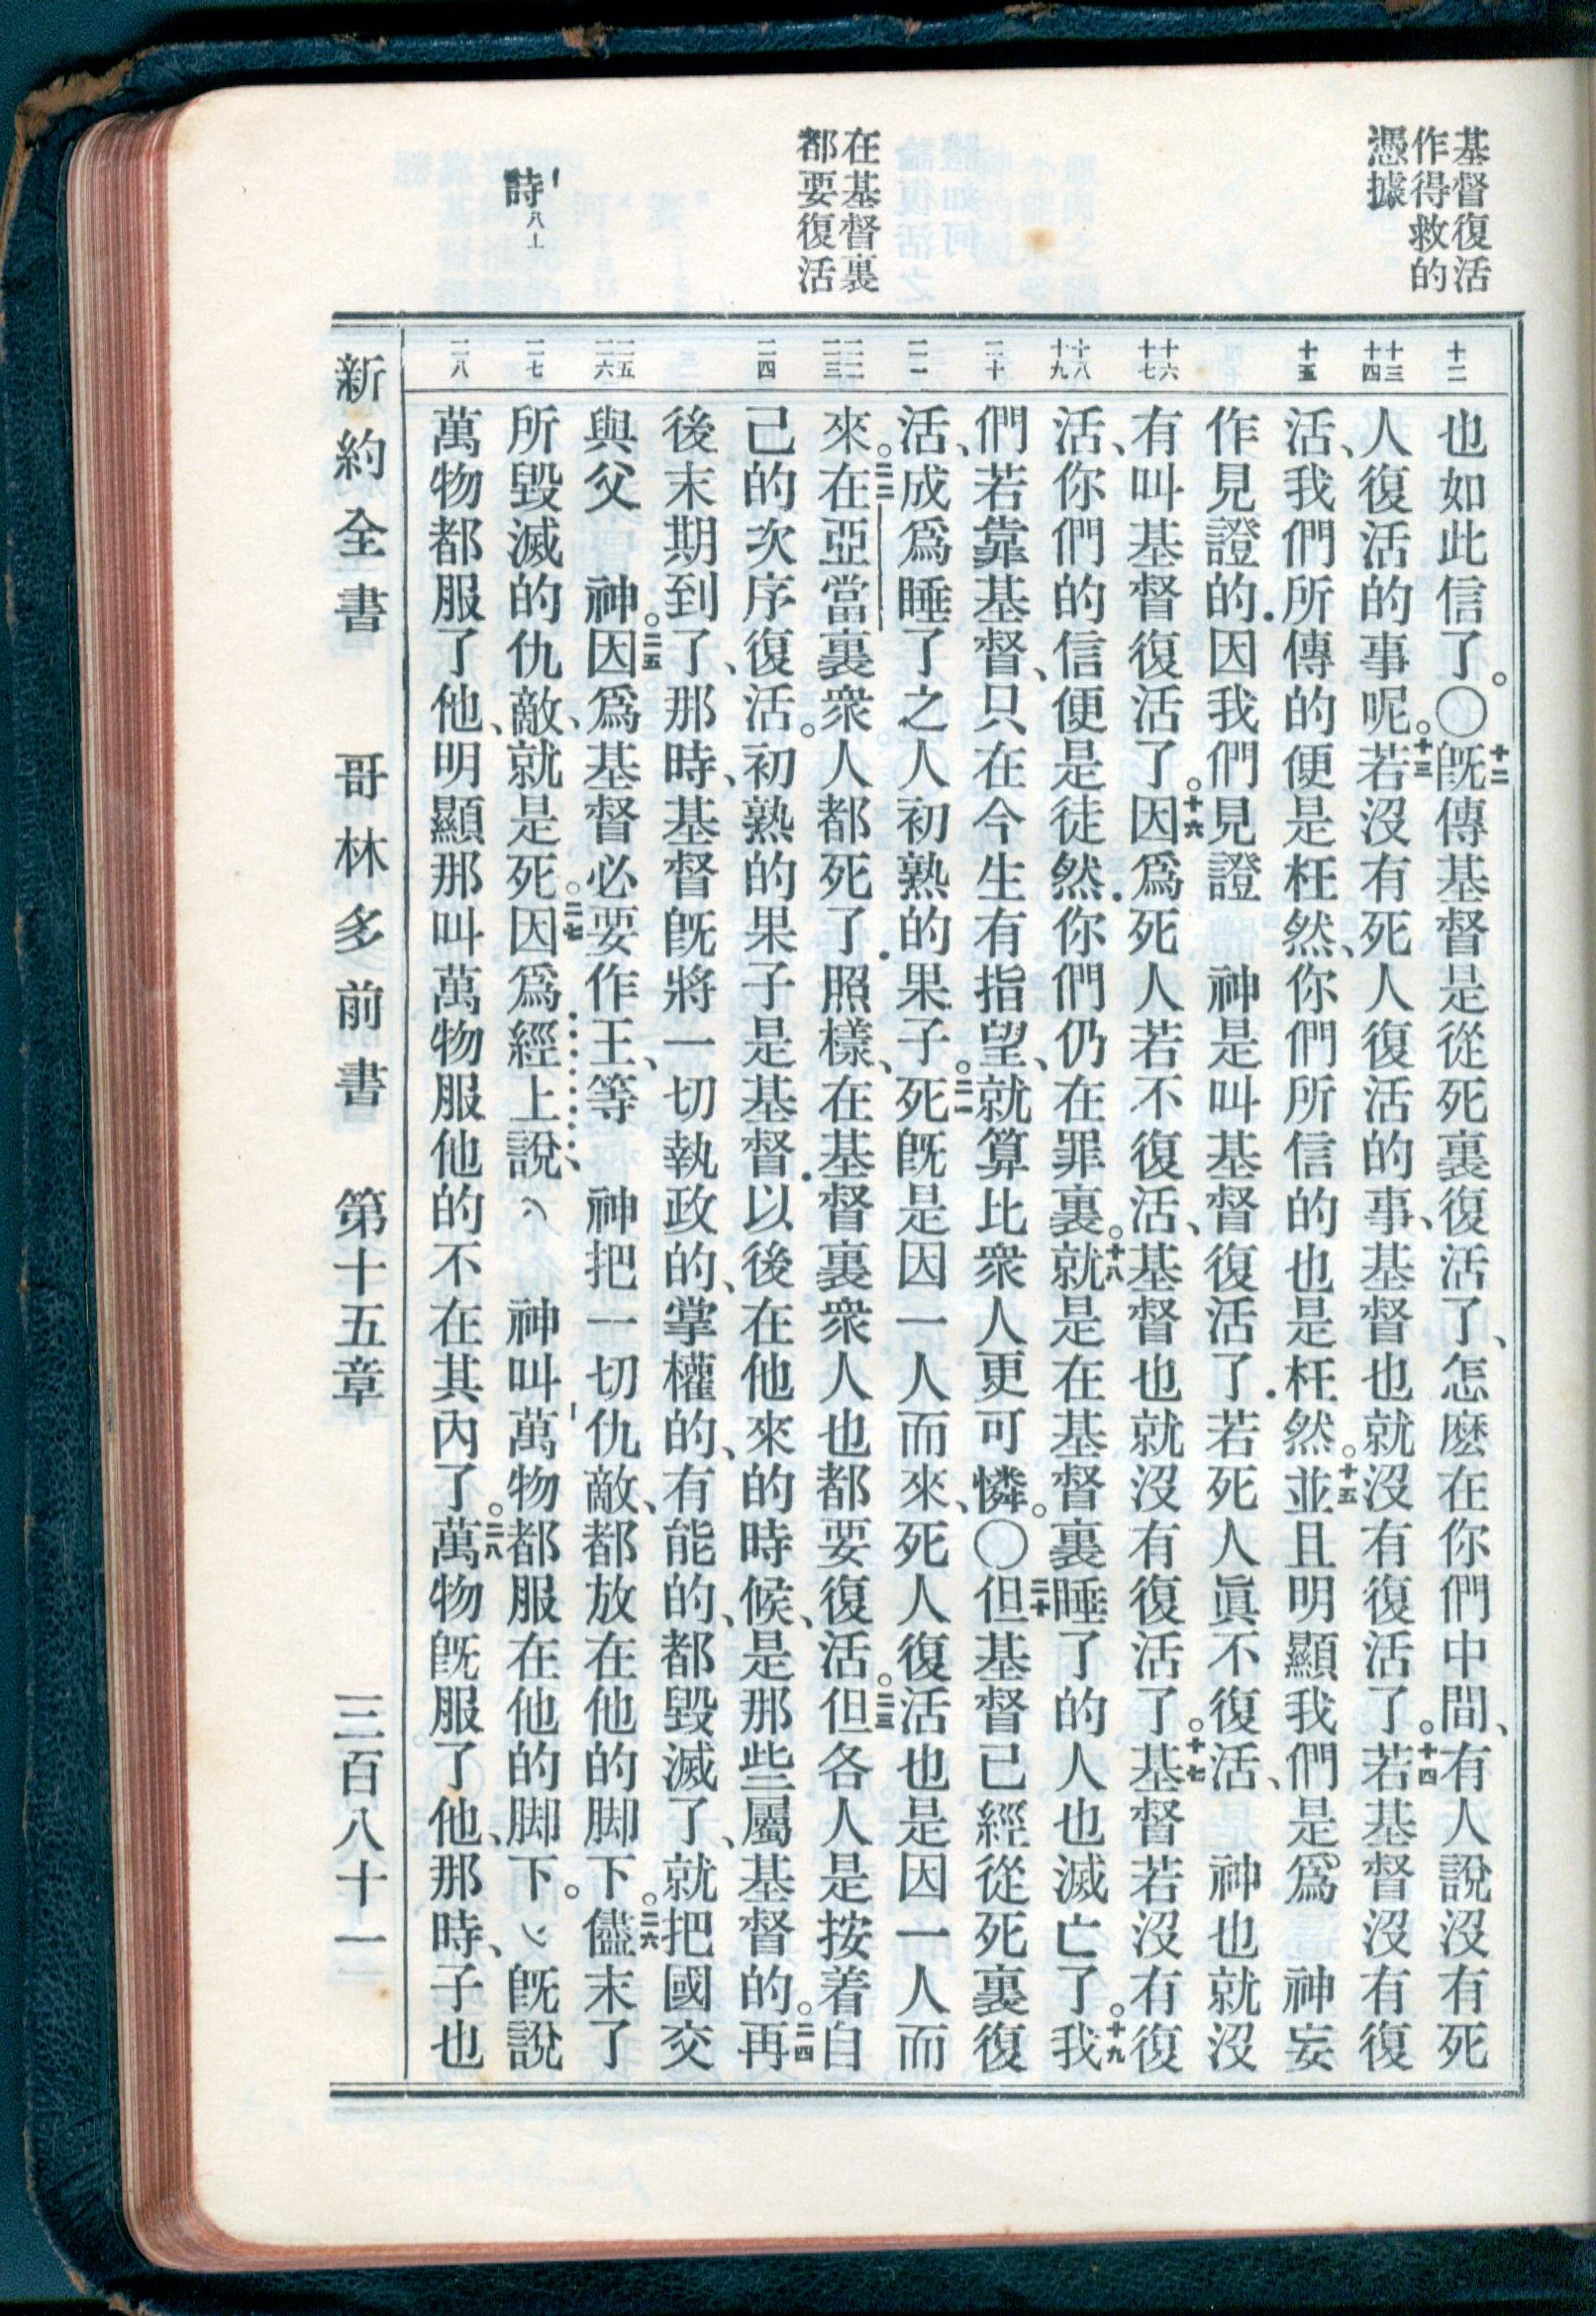 基督復活
作得救的
憑據
在基督裏
都要復活
詩八
十二
十三
十四
十五
十六
十七
十八
十九
二十
二一
二二
二三
二四
二五
二六
二七
二八
也如此信了。〇十二既傳基督是從死裏復活了、怎麽在你們中間、有人說沒有死
人復活的事呢。十三若沒有死人復活的事、基督也就沒有復活了。十四若基督沒有復
活、我們所傳的便是枉然、你們所信的也是枉然。十五並且明顯我們是爲 神妄
作見證的．因我們見證 神是叫基督復活了．若死人眞不復活、 神也就沒
有叫基督復活了。十六因爲死人若不復活、基督也就沒有復活了。十七基督若沒有復
活、你們的信便是徒然．你們仍在罪裏。十八就是在基督裏睡了的人也滅亡了。十九我
們若靠基督、只在今生有指望、就算比衆人更可憐。〇二十但基督已經從死裏復
活、成爲睡了之人初熟的果子。二一死旣是因一人而來、死人復活也是因一人而
來。二二在亞當裏衆人都死了．照樣、在基督裏衆人也都要復活。二三但各人是按着自
己的次序復活。初熟的果子是基督．以後在他來的時候、是那些屬基督的。二四再
後末期到了、那時、基督旣將一切執政的、掌權的、有能的、都毀滅了、就把國交
與父 神。二五因爲基督必要作王、等 神把一切仇敵、都放在他的脚下。二六儘末了
所毀滅的仇敵、就是死。二七因爲經上說、 神叫萬物都服在他的脚下。旣說
萬物都服了他、明顯那叫萬物服他的不在其內了。二八萬物旣服了他、那時、子也
新約全書 哥林多前書 第十五章 三百八十一